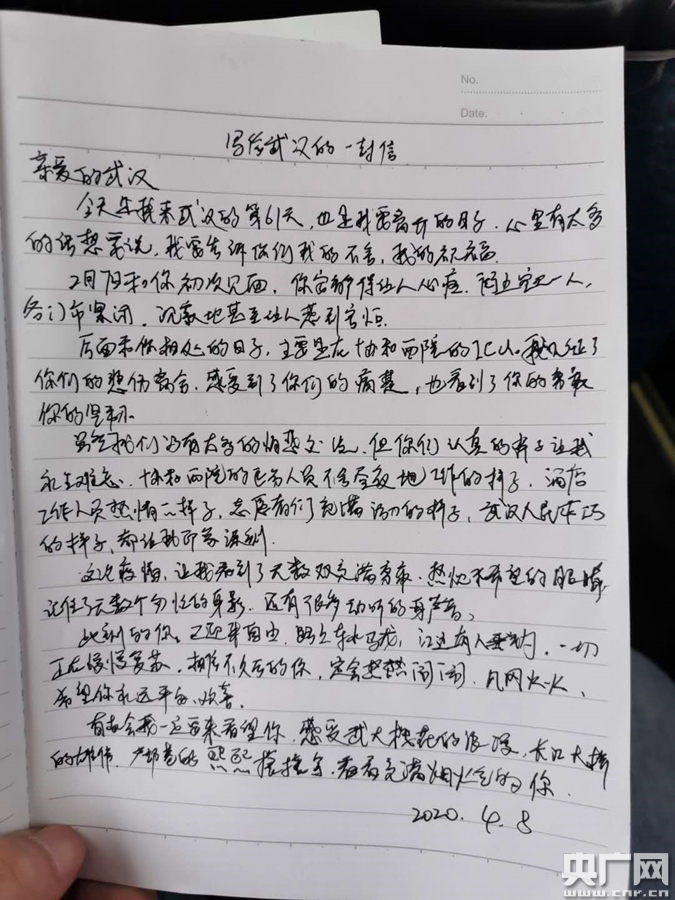 No.
Date.
写给武汉的一封信
亲爱的武汉
今天是我来武汉的第61天,也是我要离开的日子.心里有太多
的话想要说,我要告诉你们我的不舍,我的祝福.
2月7日和你初次见面,你安静得让人心疼.街道空无一人,
各门市紧闭.沉寂地甚至让人感到害怕.
后面和你相处的日子,主要是在协和西院的ICU.我见证了
你们的悲伤离合.感受到了你们的痛楚,也看到了你的勇敢
你的坚强.
虽然我们没有太多的情感交流.但你们认真的样子让我
永生难忘.协和西院的医务人员不舍昼夜地工作的样子.酒店
工作人员热情的样子,志愿者们充满活力的样子,武汉人民
的样子,都让我印象深刻.
这次疫情,让我看到了无数双充满勇敢.热忱和希望的眼睛
记住了无数个匆忙的身影.还有很多动听的声音.
此刻的你,已还半自由.路上车水马龙,江边有人,一切
正在慢慢复苏.相信不久后的你,定会熙熙闹闹.风风火火.
希望你永远平安,欢喜.
有机会我一定再来看望你.感受武大樱花的浪漫,长江大桥
的雄伟.户部巷的熙熙攘攘.看看充满烟火气的你.
2020.4.8
央广网
www.cnr.cn